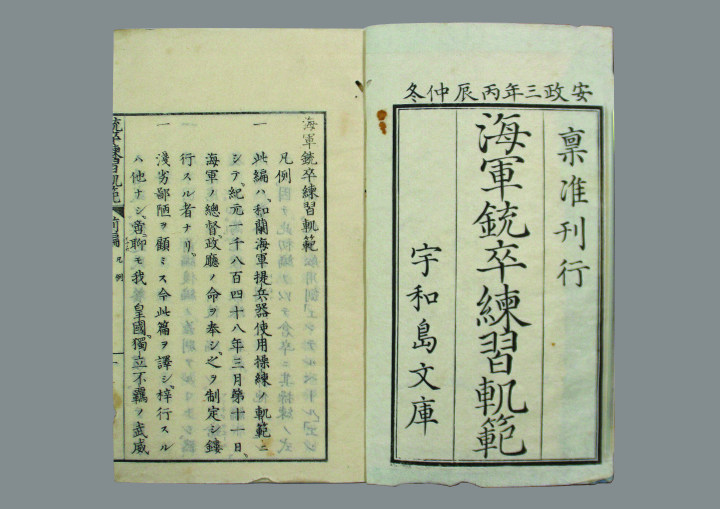 安政三年丙辰仲冬
稟准刊行
海軍銃卒練習軌範
宇和島文庫
海軍銃卒練習軌範
凡例
一 此編ハ、和蘭海軍提兵器使用操練ノ軌範ニ
シテ、紀元一千八百四十八年三月第十一日、
海軍ノ總督、政廳ノ命ヲ奉シ、之ヲ制定シ鏤
行スル者ナリ、
一 淺劣鄙陋ヲ顧ミス今此篇ヲ譯シ、梓行スル
ハ他ナシ、啻聊モ我 皇國、獨立不羈ノ武威
銃卒練習軌範 前編 凡例 一